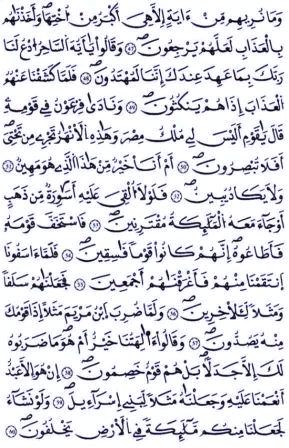 وَمَا نُرِيهِم مِّنْ ءَايَةٍ اِلَّا هِيَ أَكْبَرُ مِنْ أُخْتِهَا وَأَخَذْنَٰهُم
بِالْعَذَابِ لَعَلَّهُمْ يَرْجِعُونَ وَقَالُوا يَٰأَيُّهَ السَّاحِرُ ادْعُ لَنَا
رَبَّكَ بِمَا عَهِدَ عِندَكَ إِنَّنَا لَمُهْتَدُونَ فَلَمَّا كَشَفْنَا عَنْهُمُ
الْعَذَابَ إِذَا هُمْ يَنكُثُونَ وَنَادَىٰ فِرْعَوْنُ فِي قَوْمِهِ
قَالَ يَٰقَوْمِ أَلَيْسَ لِي مُلْكُ مِصْرَ وَهَٰذِهِ الْأَنْهَٰرُ تَجْرِي مِن تَحْتِي
أَفَلَا تُبْصِرُونَ أَمَ اَنَا خَيْرٌ مِّنْ هَٰذَا الَّذِي هُوَ مَهِينٌ
وَلَا يَكَادُ يُبِينُ فَلَوْلَا أُلْقِيَ عَلَيْهِ أَسَٰوِرَةٌ مِّن ذَهَبٍ
أَوْ جَاءَ مَعَهُ الْمَلَٰئِكَةُ مُقْتَرِنِينَ فَاسْتَخَفَّ قَوْمَهُ
فَأَطَاعُوهُ إِنَّهُمْ كَانُوا قَوْمًا فَٰسِقِينَ فَلَمَّا ءَاسَفُونَا
انتَقَمْنَا مِنْهُمْ فَأَغْرَقْنَٰهُمْ أَجْمَعِينَ فَجَعَلْنَٰهُمْ سَلَفًا
وَمَثَلًا لِّلْءَاخِرِينَ وَلَمَّا ضُرِبَ ابْنُ مَرْيَمَ مَثَلًا اِذَا قَوْمُكَ
مِنْهُ يَصُدُّونَ وَقَالُوا ءَأَٰلِهَتُنَا خَيْرٌ اَمْ هُوَ مَا ضَرَبُوهُ
لَكَ إِلَّا جَدَلًا بَلْ هُمْ قَوْمٌ خَصِمُونَ إِنْ هُوَ إِلَّا عَبْدٌ
اَنْعَمْنَا عَلَيْهِ وَجَعَلْنَٰهُ مَثَلًا لِّبَنِي إِسْرَٰءِيلَ وَلَوْ نَشَاءُ
لَجَعَلْنَا مِنكُم مَّلَٰئِكَةً فِي الْأَرْضِ يَخْلُفُونَ